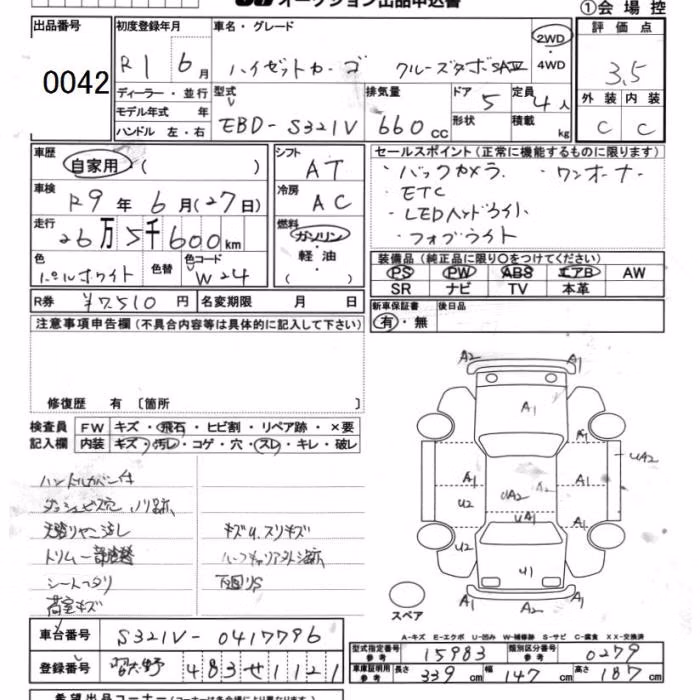 オークション出品申込書
①会場控
出品番号
0042
初度登録年月
R1 6月
車名・グレード
ハイゼットカーゴ クルーズターボSAⅢ
2WD
4WD
評価点
3.5
外装 内装
C C
ディーラー・並行
モデル年式 年
ハンドル 左・右
型式
EBD-S321V
排気量
660cc
ドア 5
形状
定員 4人
積載 kg
車歴
自家用・( )
車検
R9年 6月(27日)
走行
26万5千600km
色
パールホワイト
色替
色コード
W24
シフト
AT
冷房
AC
燃料
ガソリン
軽油
( )
セールスポイント(正常に機能するものに限ります)
・バックカメラ ・ワンオーナー
・ETC
・LEDヘッドライト
・フォグライト
装備品(純正品に限り○をつけてください)
PS PW ABS エアB AW
SR ナビ TV 本革
R券 ¥7,510円 名変期限 月 日
新車保証書 後日品
有・無
注意事項申告欄(不具合内容等は具体的に記入して下さい)
修復歴 有 〔箇所 〕
検査員
記入欄
FW キズ・飛石・ヒビ割・リペア跡・×要
内装 キズ・汚レ・コゲ・穴・スレ・キレ・破レ
ハンドルカバー付
ダッシュビス穴 ノリ跡
天張りヤニ汚し
トリム一部
シートヘタリ
荷室キズ
キズU.スリキズ
ルーフキャリア
下回りS
A2 A1
A1
UA2
A1 A1
U2 UA2 A2
UA1 A1
U2
U1
A1 A2 A1
スペア
A-キズ E-エクボ U-凹み W-補修跡 S-サビ C-腐食 XX-交換済
車台番号 S321V-0417796
登録番号 習志野 483 せ 1121
型式指定番号 参考 15983
類別区分番号 参考 0279
車庫証明用 参考 長さ 339cm 幅 147cm 高さ 187cm
希望出品コーナー